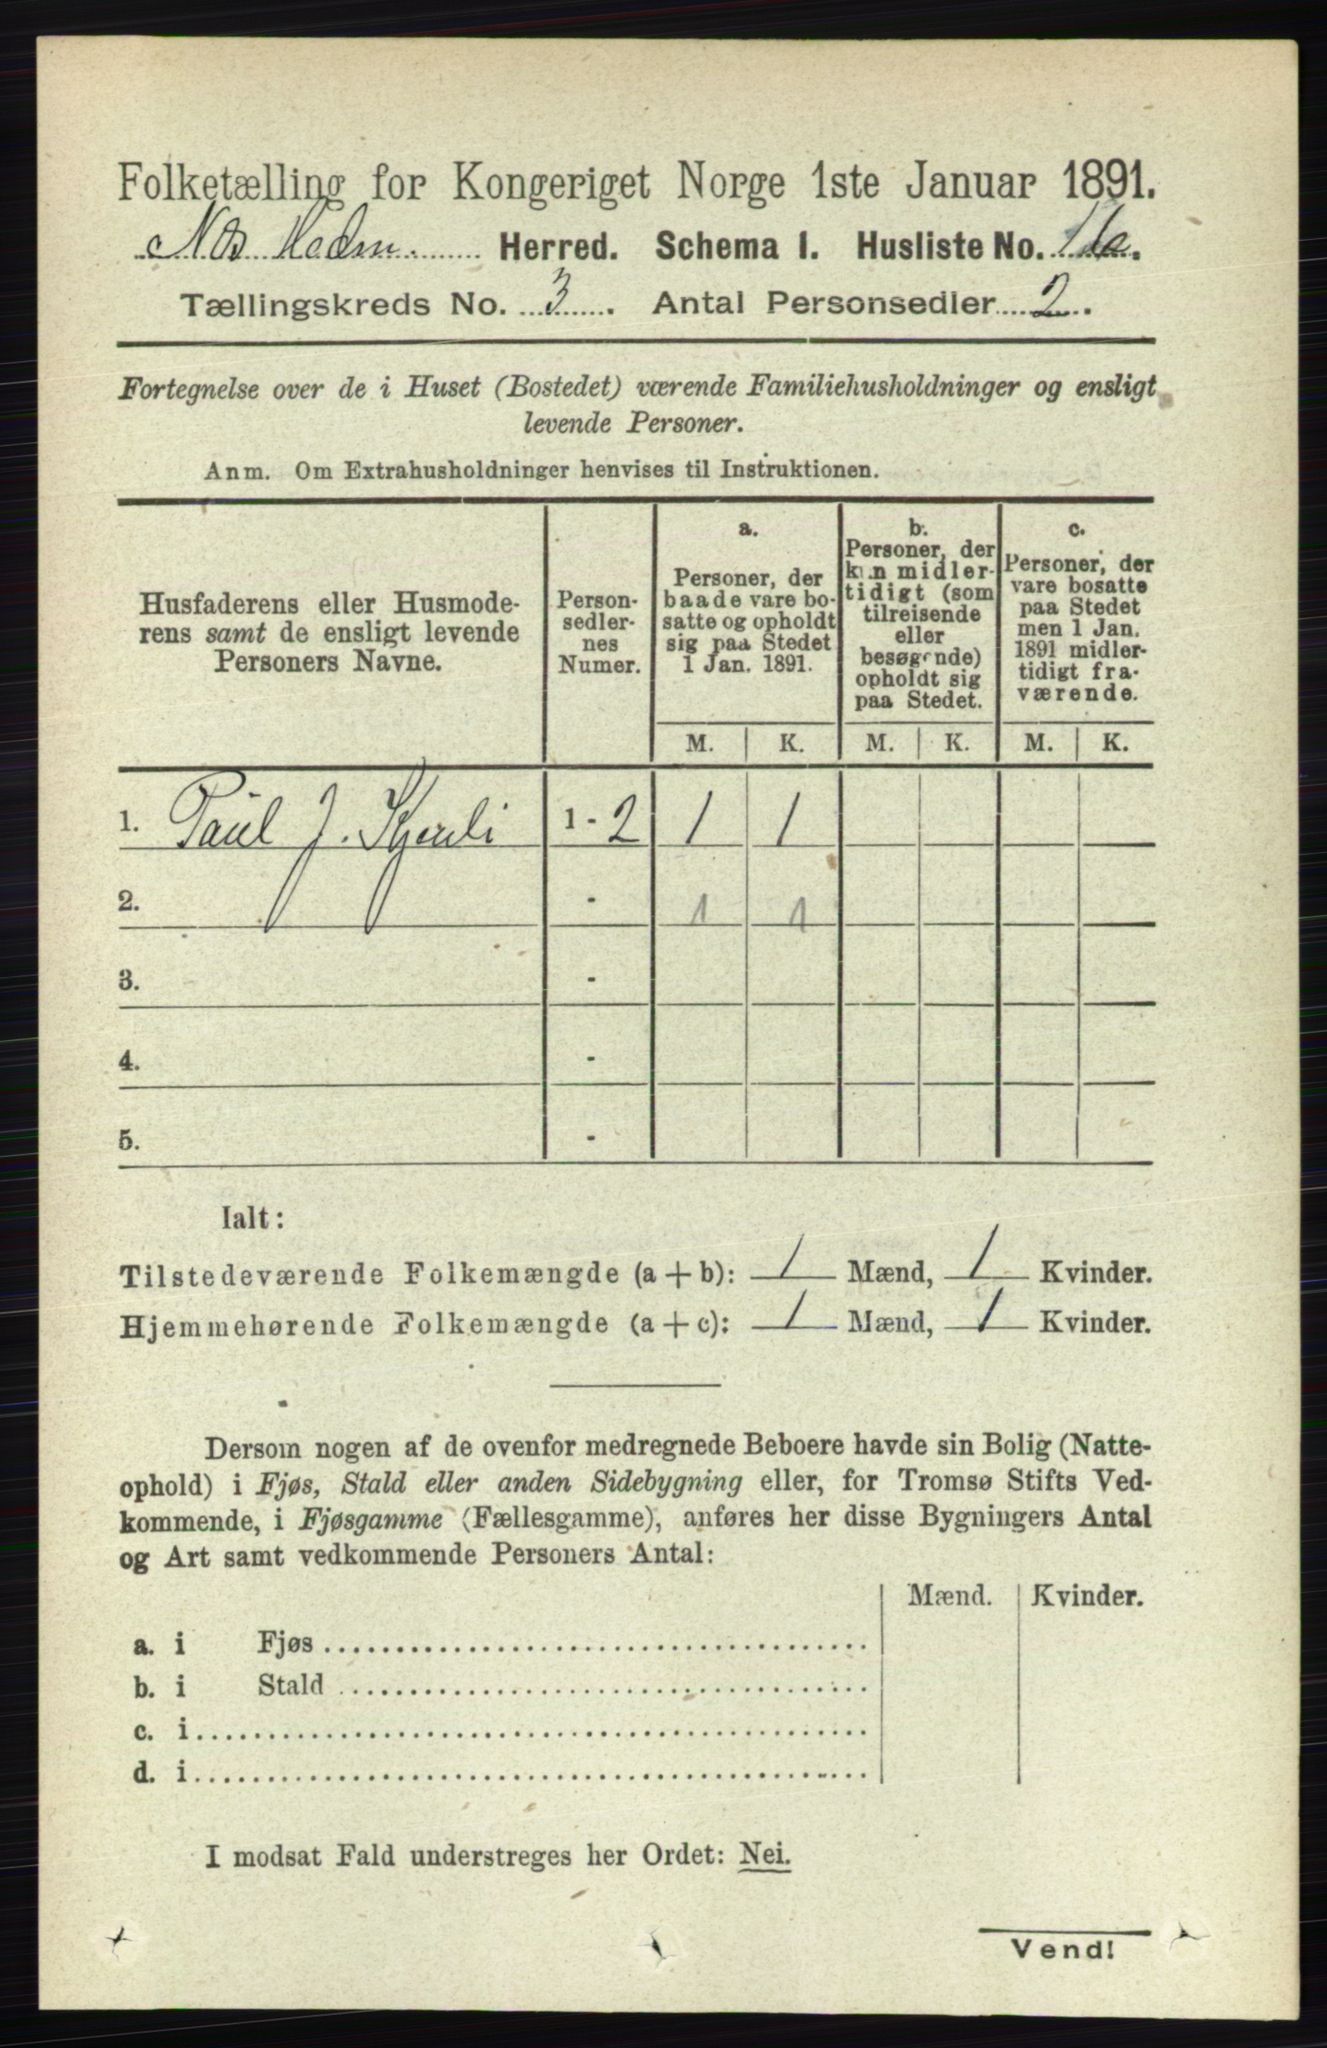 Folketælling for Kongeriget Norge 1ste Januar 1891.
Nes Hedm. Herred. Schema 1. Husliste No. 16.
Tællingskreds No. 3. Antal Personsedler 2.
Fortegnelse over de i Huset (Bostedet) værende Familiehusholdninger og ensligt
levende Personer.
Anm. Om Extrahusholdninger henvises til Instruktionen.
Husfaderens eller Husmode-
rens samt de ensligt levende
Personers Navne.
Person-
sedler-
nes
Numer.
a.
Personer, der
baade vare bo-
satte og opholdt
sig paa Stedet
1 Jan. 1891.
b.
Personer, der
kun midler-
tidigt (som
tilreisende
eller
besøgende)
opholdt sig
paa Stedet.
c.
Personer, der
vare bosatte
paa Stedet
men 1 Jan.
1891 midler-
tidigt fra-
værende.
M. K. M. K. M. K.
1. Paul J. 1 - 2 1 1
2. - 1 1
3. -
4. -
5. -
Ialt:
Tilstedeværende Folkemængde (a + b): 1 Mænd, 1 Kvinder.
Hjemmehørende Folkemængde (a + c): 1 Mænd, 1 Kvinder.
Dersom nogen af de ovenfor medregnede Beboere havde sin Bolig (Natte-
ophold) i Fjøs, Stald eller anden Sidebygning eller, for Tromsø Stifts Ved-
kommende, i Fjøsgamme (Fællesgamme), anføres her disse Bygningers Antal
og Art samt vedkommende Personers Antal:
Mænd. Kvinder.
a. i Fjøs
b. i Stald
c. i
d. i
I modsat Fald understreges her Ordet: Nei.
Vend!